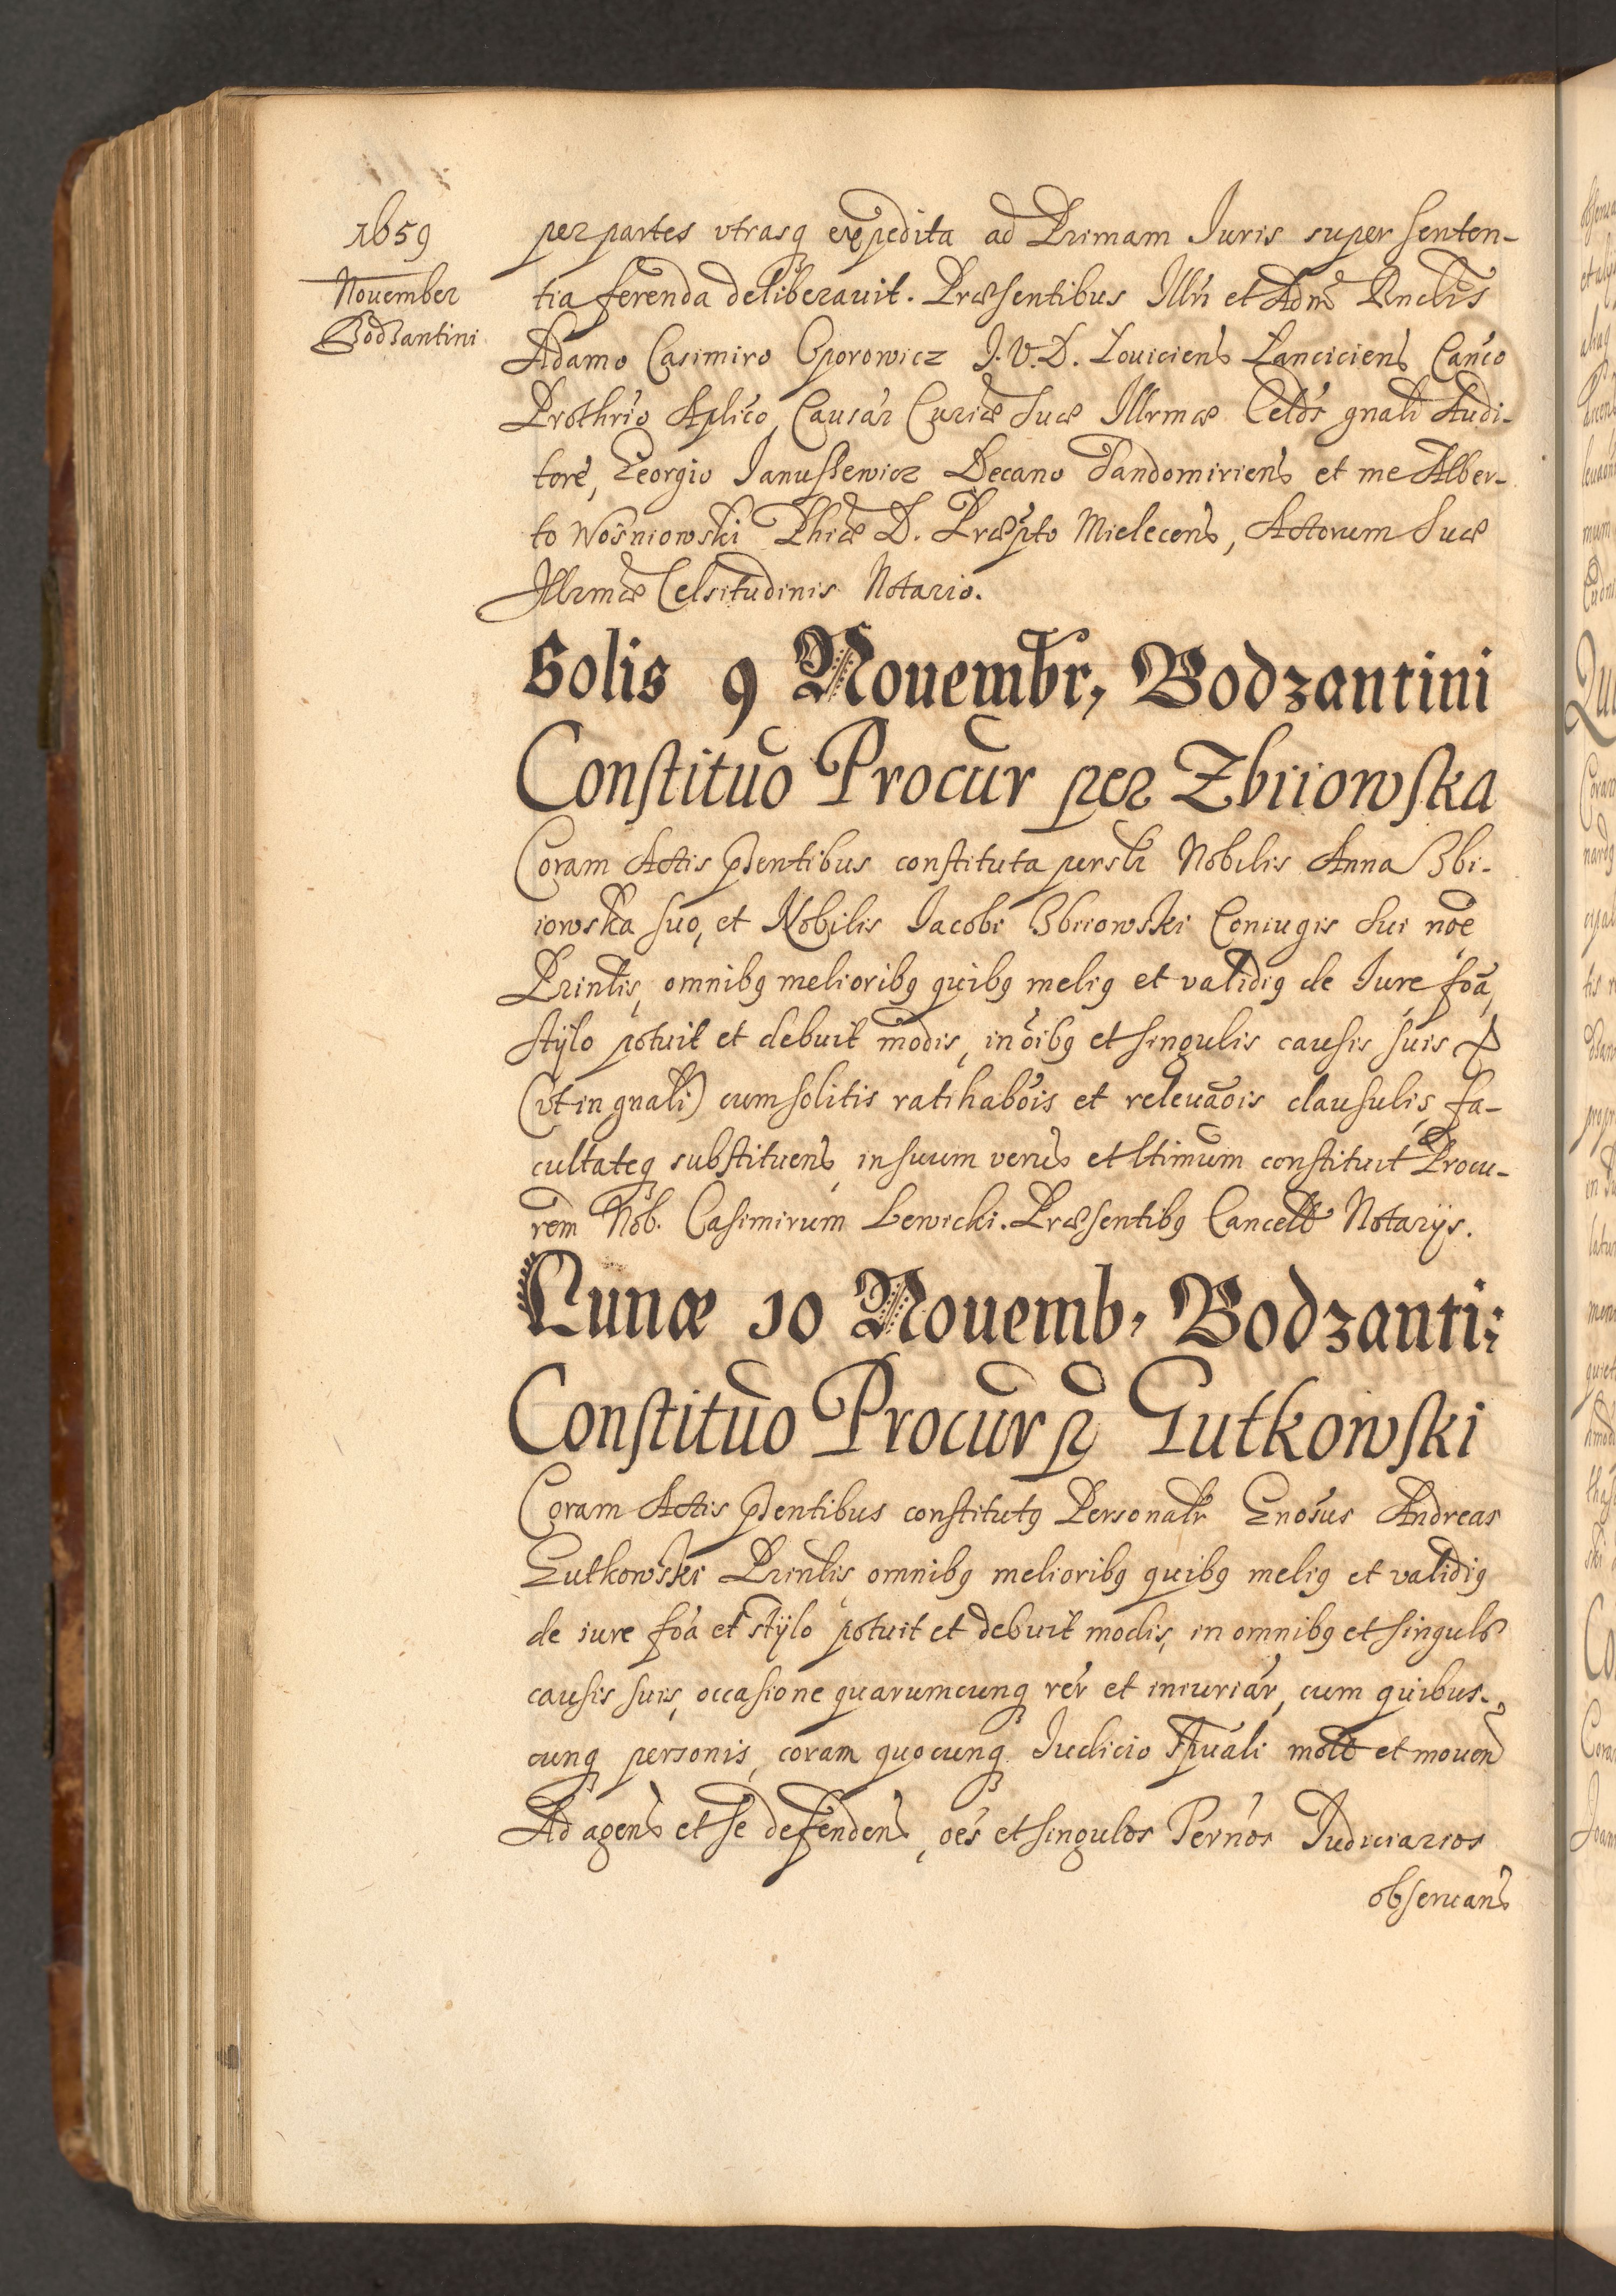 1659
November
Bodzantini
per partes vtrasq̃ expedita ad Primam Iuris super senten-
tia ferenda deliberauit. Præsentibus Illri et Adm̃ Rndis
Adamo Casimiro Oporowicz I.V.D. Louiciens Lanciciens Canco
Prothrio Aplico, Causar Curiæ Suæ Illrmæ Celds gnali Audi-
tore, Georgio Ianuszewicz Decano Sandomiriens et me Alber-
to Wosniowski Phiæ D. Præpto Mielecens, Actorum Suæ
Illrmæ Celsitudinis Notario.
Solis 9 Nouembr, Bodzantini
Constituo Procur per Zbiiowska
Coram Actis pntibus constituta perslr Nobilis Anna Zbi-
iowska suo, et Nobilis Iacobi Zbiiowski Coniugis sui noe
Prinlis, omnibq melioribq quibq meliq et validiq de Iure foa,
stylo potuit et debuit modis, in oibq et singulis causis suis &
(vt in gnali) cum solitis ratihabois et releuaois clausulis, fa-
cultateq substituens, in suum verus et ltimum constituit Procu-
rem Nob. Casimirum Lewicki. Præsentibq Cancell Notarijs.
Lunæ 10 Nouemb, Bodzanti:
Constituo Procur p Gutkowski
Coram Actis pntibus constitutq Personalr Gnosus Andreas
Gutkowski Prinlis omnibq melioribq quibq meliq et validiq
de iure foa et stylo potuit et debuit modis, in omnibq et singuls
causis suis, occasione quarumcunq rer et iniuriar, cum quibus-
cunq personis, coram quocunq Iudicio Spuali mott et mouen
Ad agens et se defendens, oes et singulos Pernos Iudiciarios
obseruans